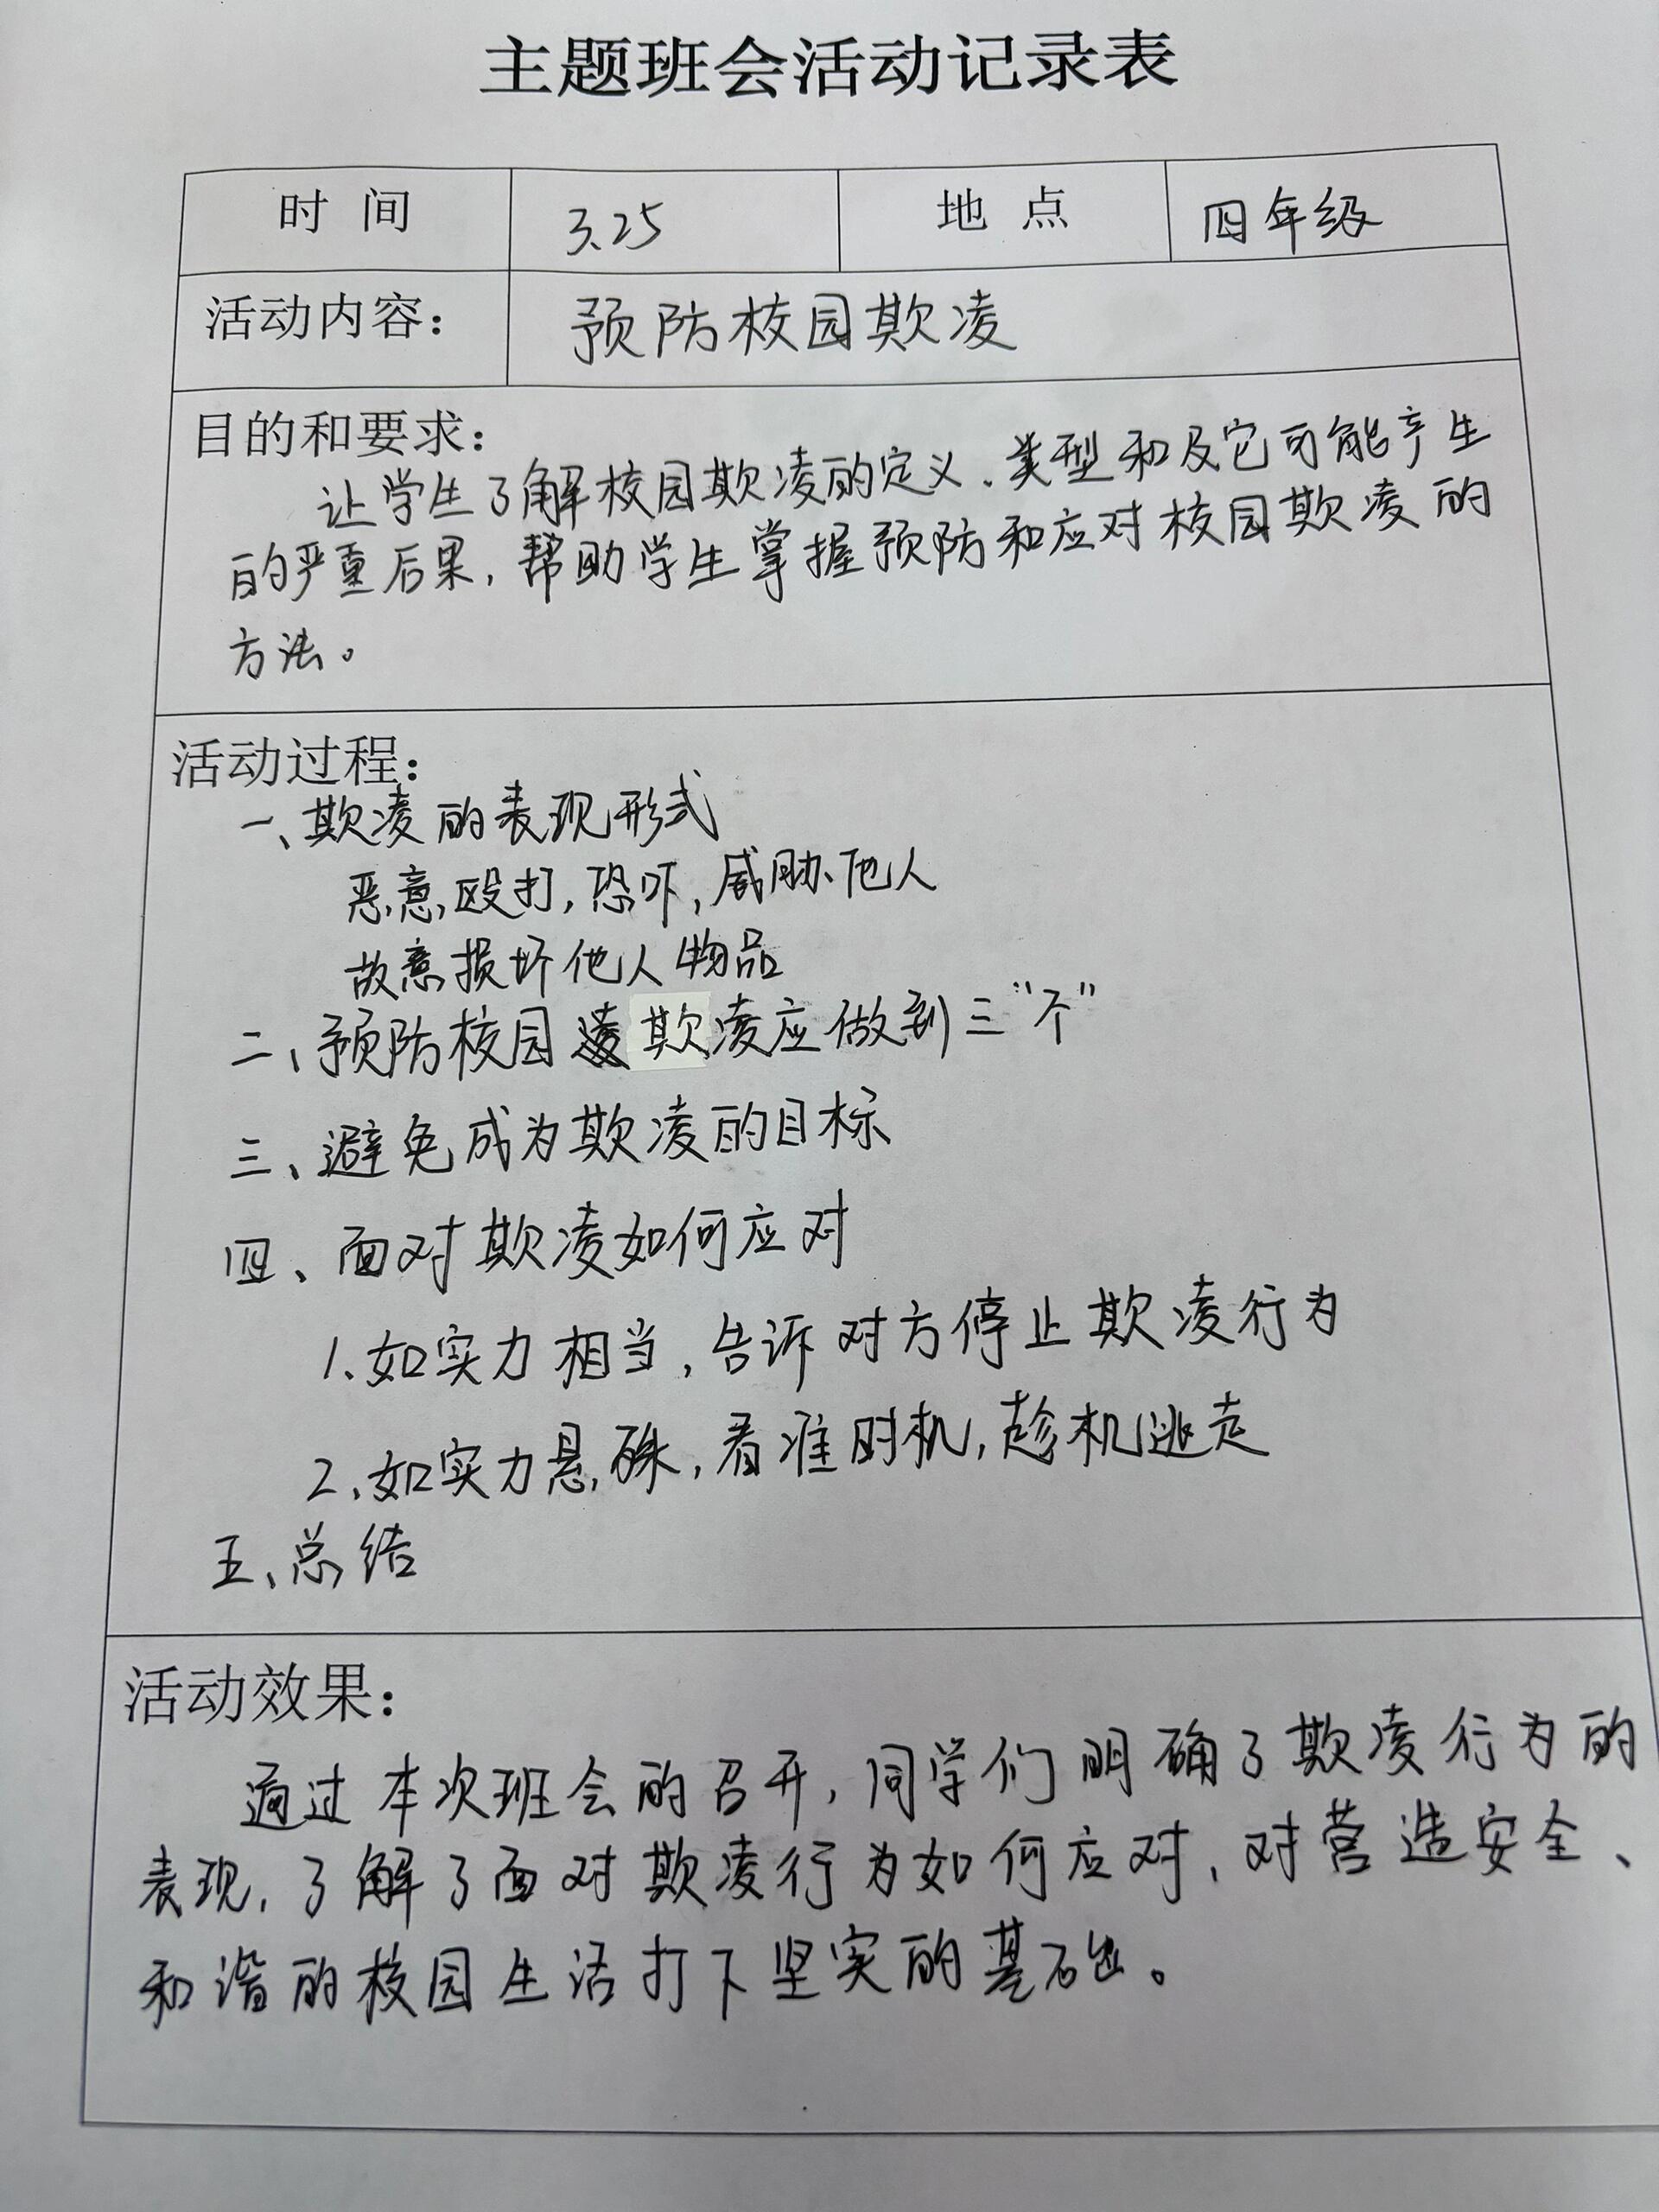 主题班会活动记录表
时 间 3.25 地 点 四年级
活动内容： 预防校园欺凌
目的和要求：
让学生了解校园欺凌的定义、类型和及它可能产生
的严重后果，帮助学生掌握预防和应对校园欺凌的
方法。
活动过程：
一、欺凌的表现形式
恶意殴打，恐吓，威胁他人
故意损坏他人物品
二、预防校园欺凌应做到三“个”
三、避免成为欺凌的目标
四、面对欺凌如何应对
1.如实力相当，告诉对方停止欺凌行为
2.如实力悬殊，看准时机，趁机逃走
五、总结
活动效果：
通过本次班会的召开，同学们明确了欺凌行为的
表现，了解了面对欺凌行为如何应对，对营造安全、
和谐的校园生活打下坚实的基础。